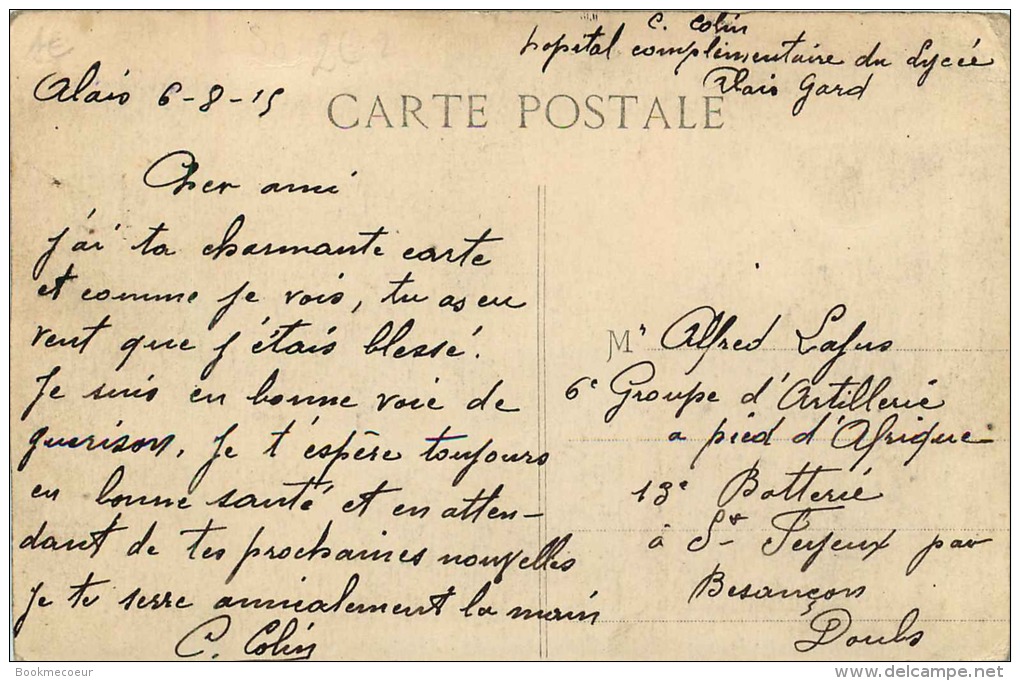 C. Colin
hopital complémentaire du Lycée
Alais Gard
Alais 6-8-15
CARTE POSTALE
Cher ami
J'ai ta charmante carte
et comme je vois, tu as eu
vent que j'étais blessé.
Je suis en bonne voie de
guerison. Je t'éspère toujours
en bonne santé et en atten-
dant de tes prochaines nouvelles
Je te serre amicalement la main
C. Colin
Mr Alfred Lafus
6e Groupe d'Artillerie
a pied d'Afrique
13e Batterie
à St Ferjeux par
Besançon
Doubs
Bookmecoeur
www.delcampe.net